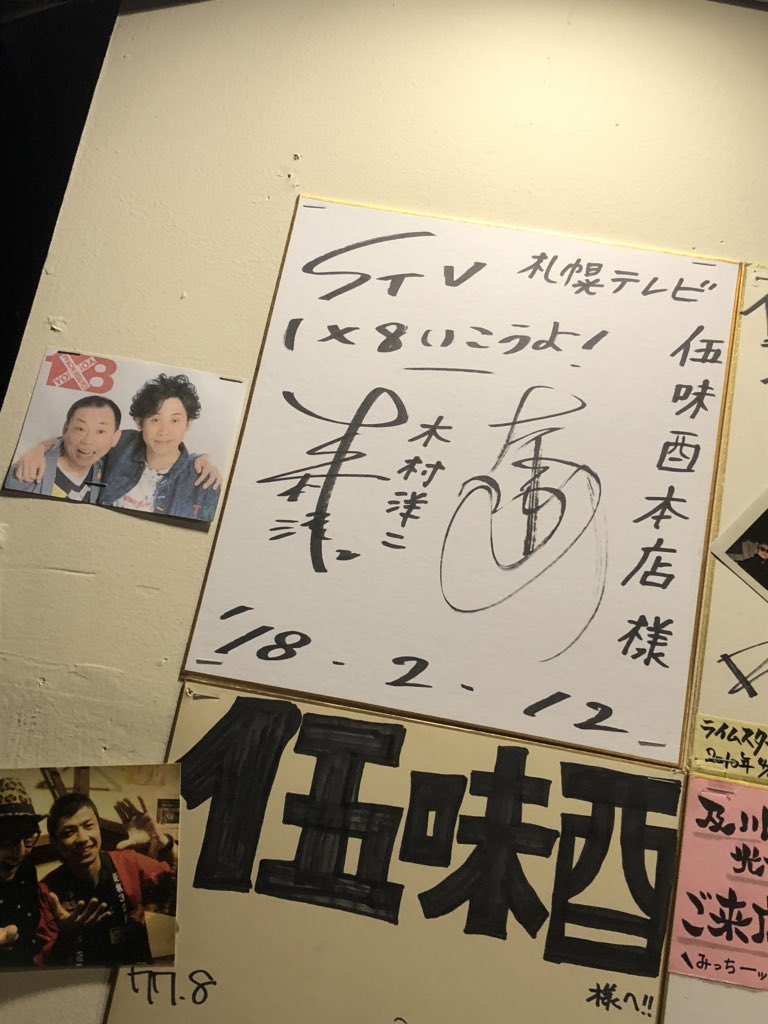 STV 札幌テレビ
1×8いこうよ!
伍味酉本店 様
木村洋二
'18.2.12
1×8
伍味酉
様へ!!
77.8
ライムスタ
及川
光
ご来店
みっちーッ